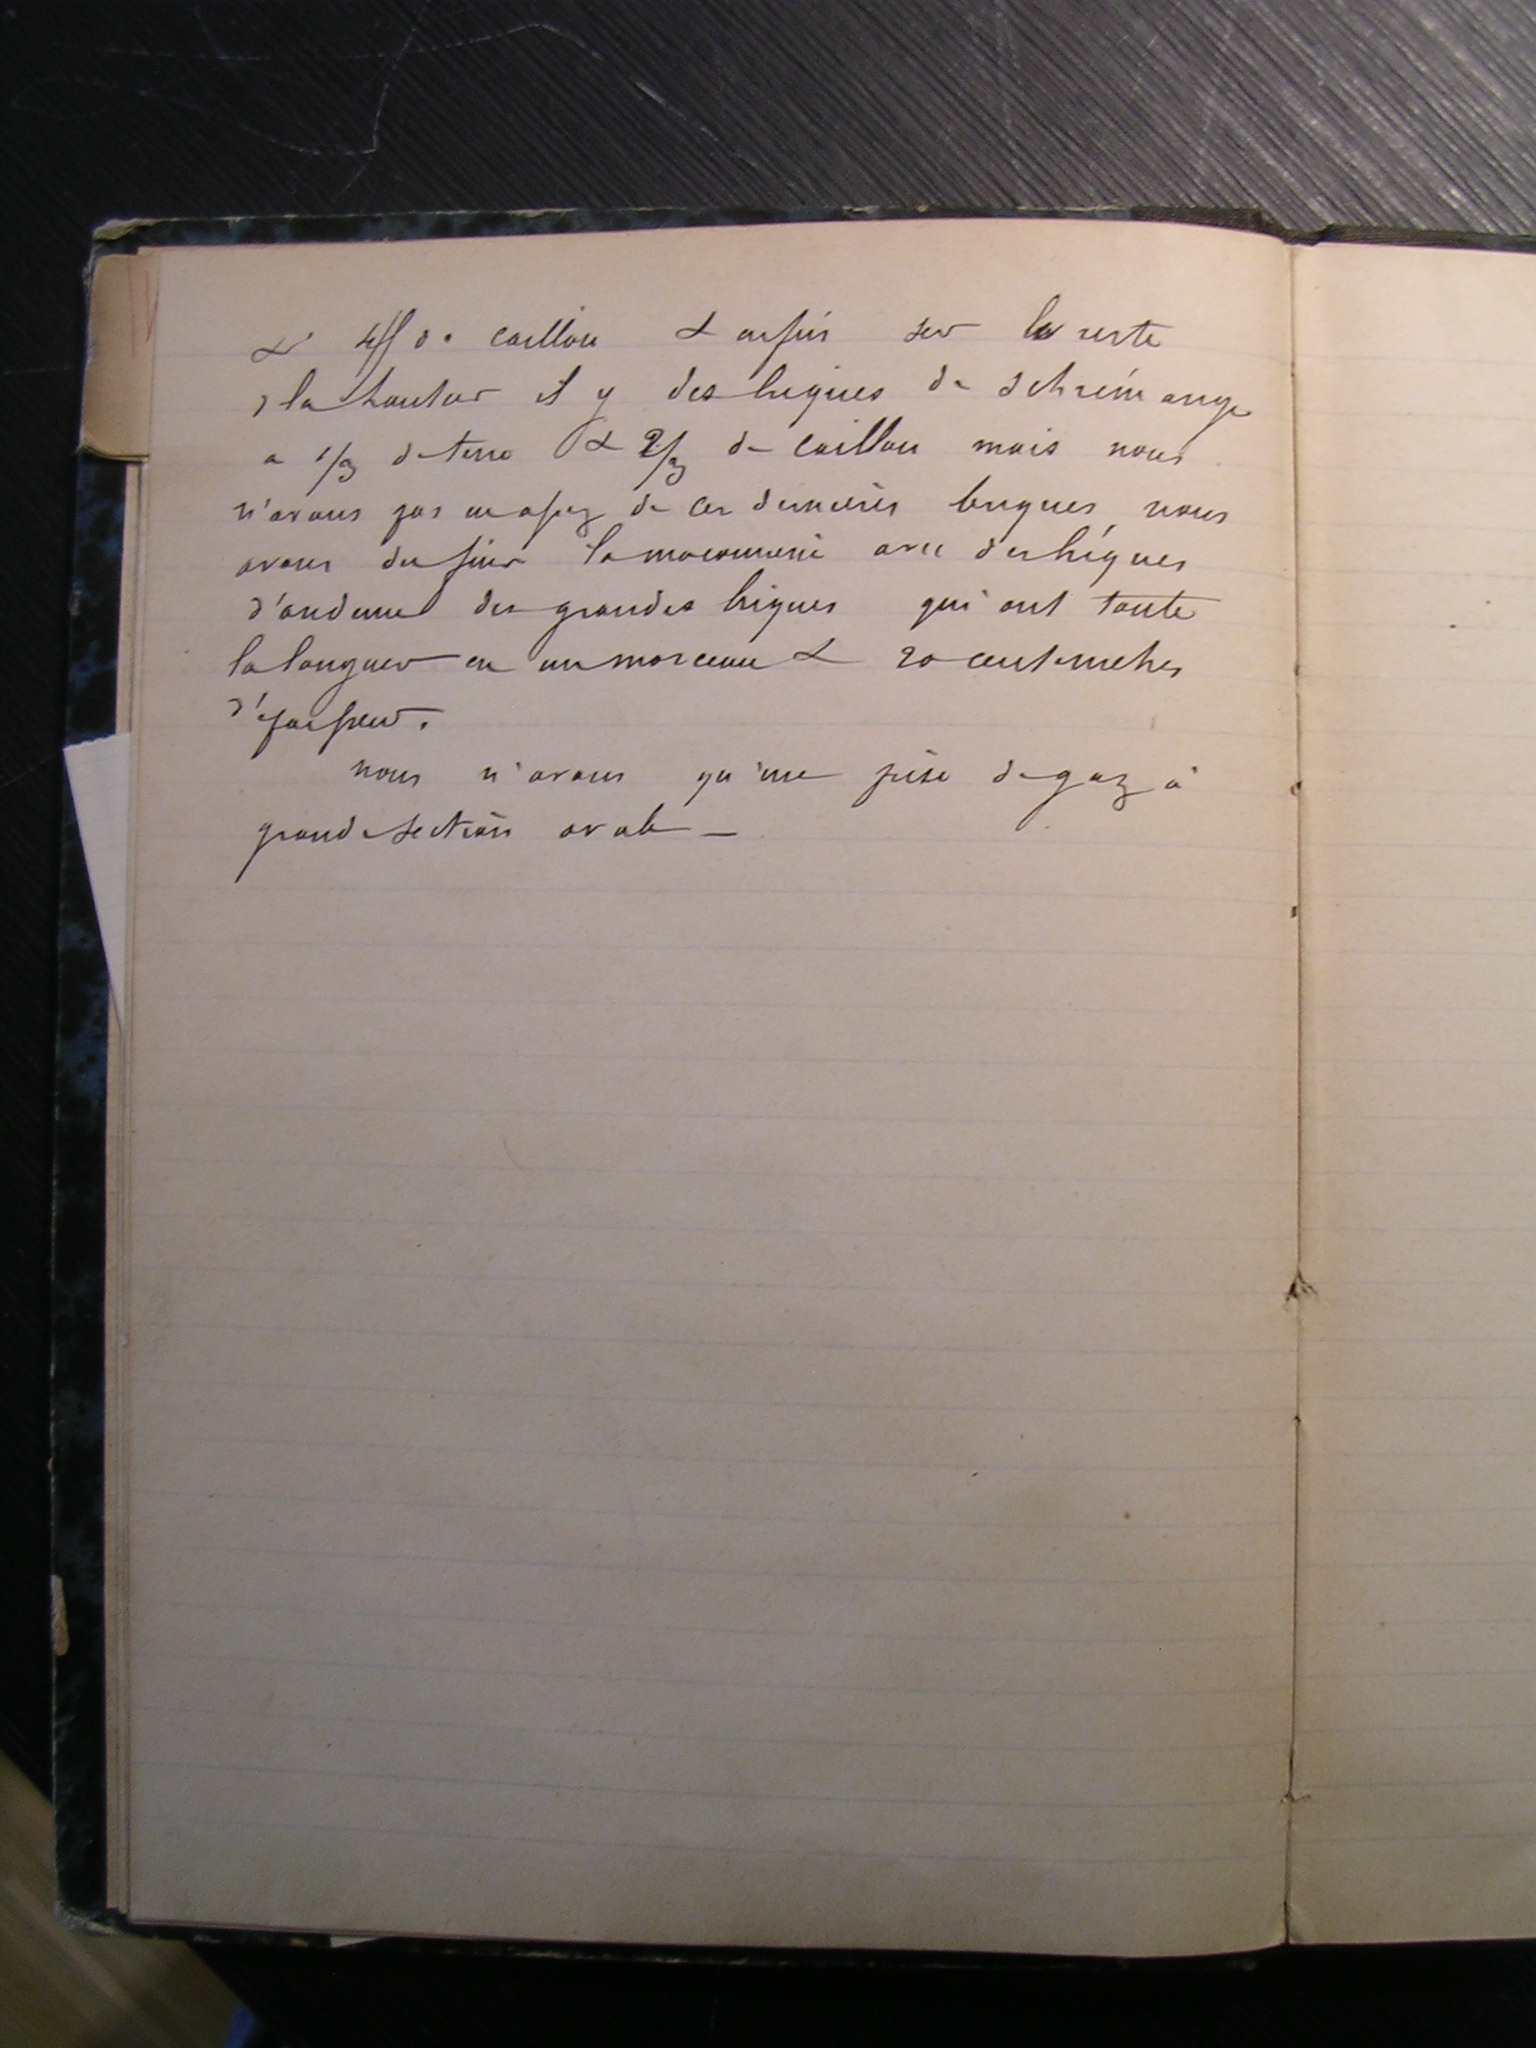 & 4/5 de caillou & enfin sur le reste
d la hauteur il y des briques de Schrémange
a 1/3 de terre & 2/3 de caillou mais nous
n'avons pas eu assez de ces dernières briques, nous
avons du finir la maconnerie avec des briques
d'andenne des grandes briques qui ont toute
la longueur en un morceau & 20 centimetres
d'epaisseur.
nous n'avons qu'une prise de gaz à
grande section ovale —